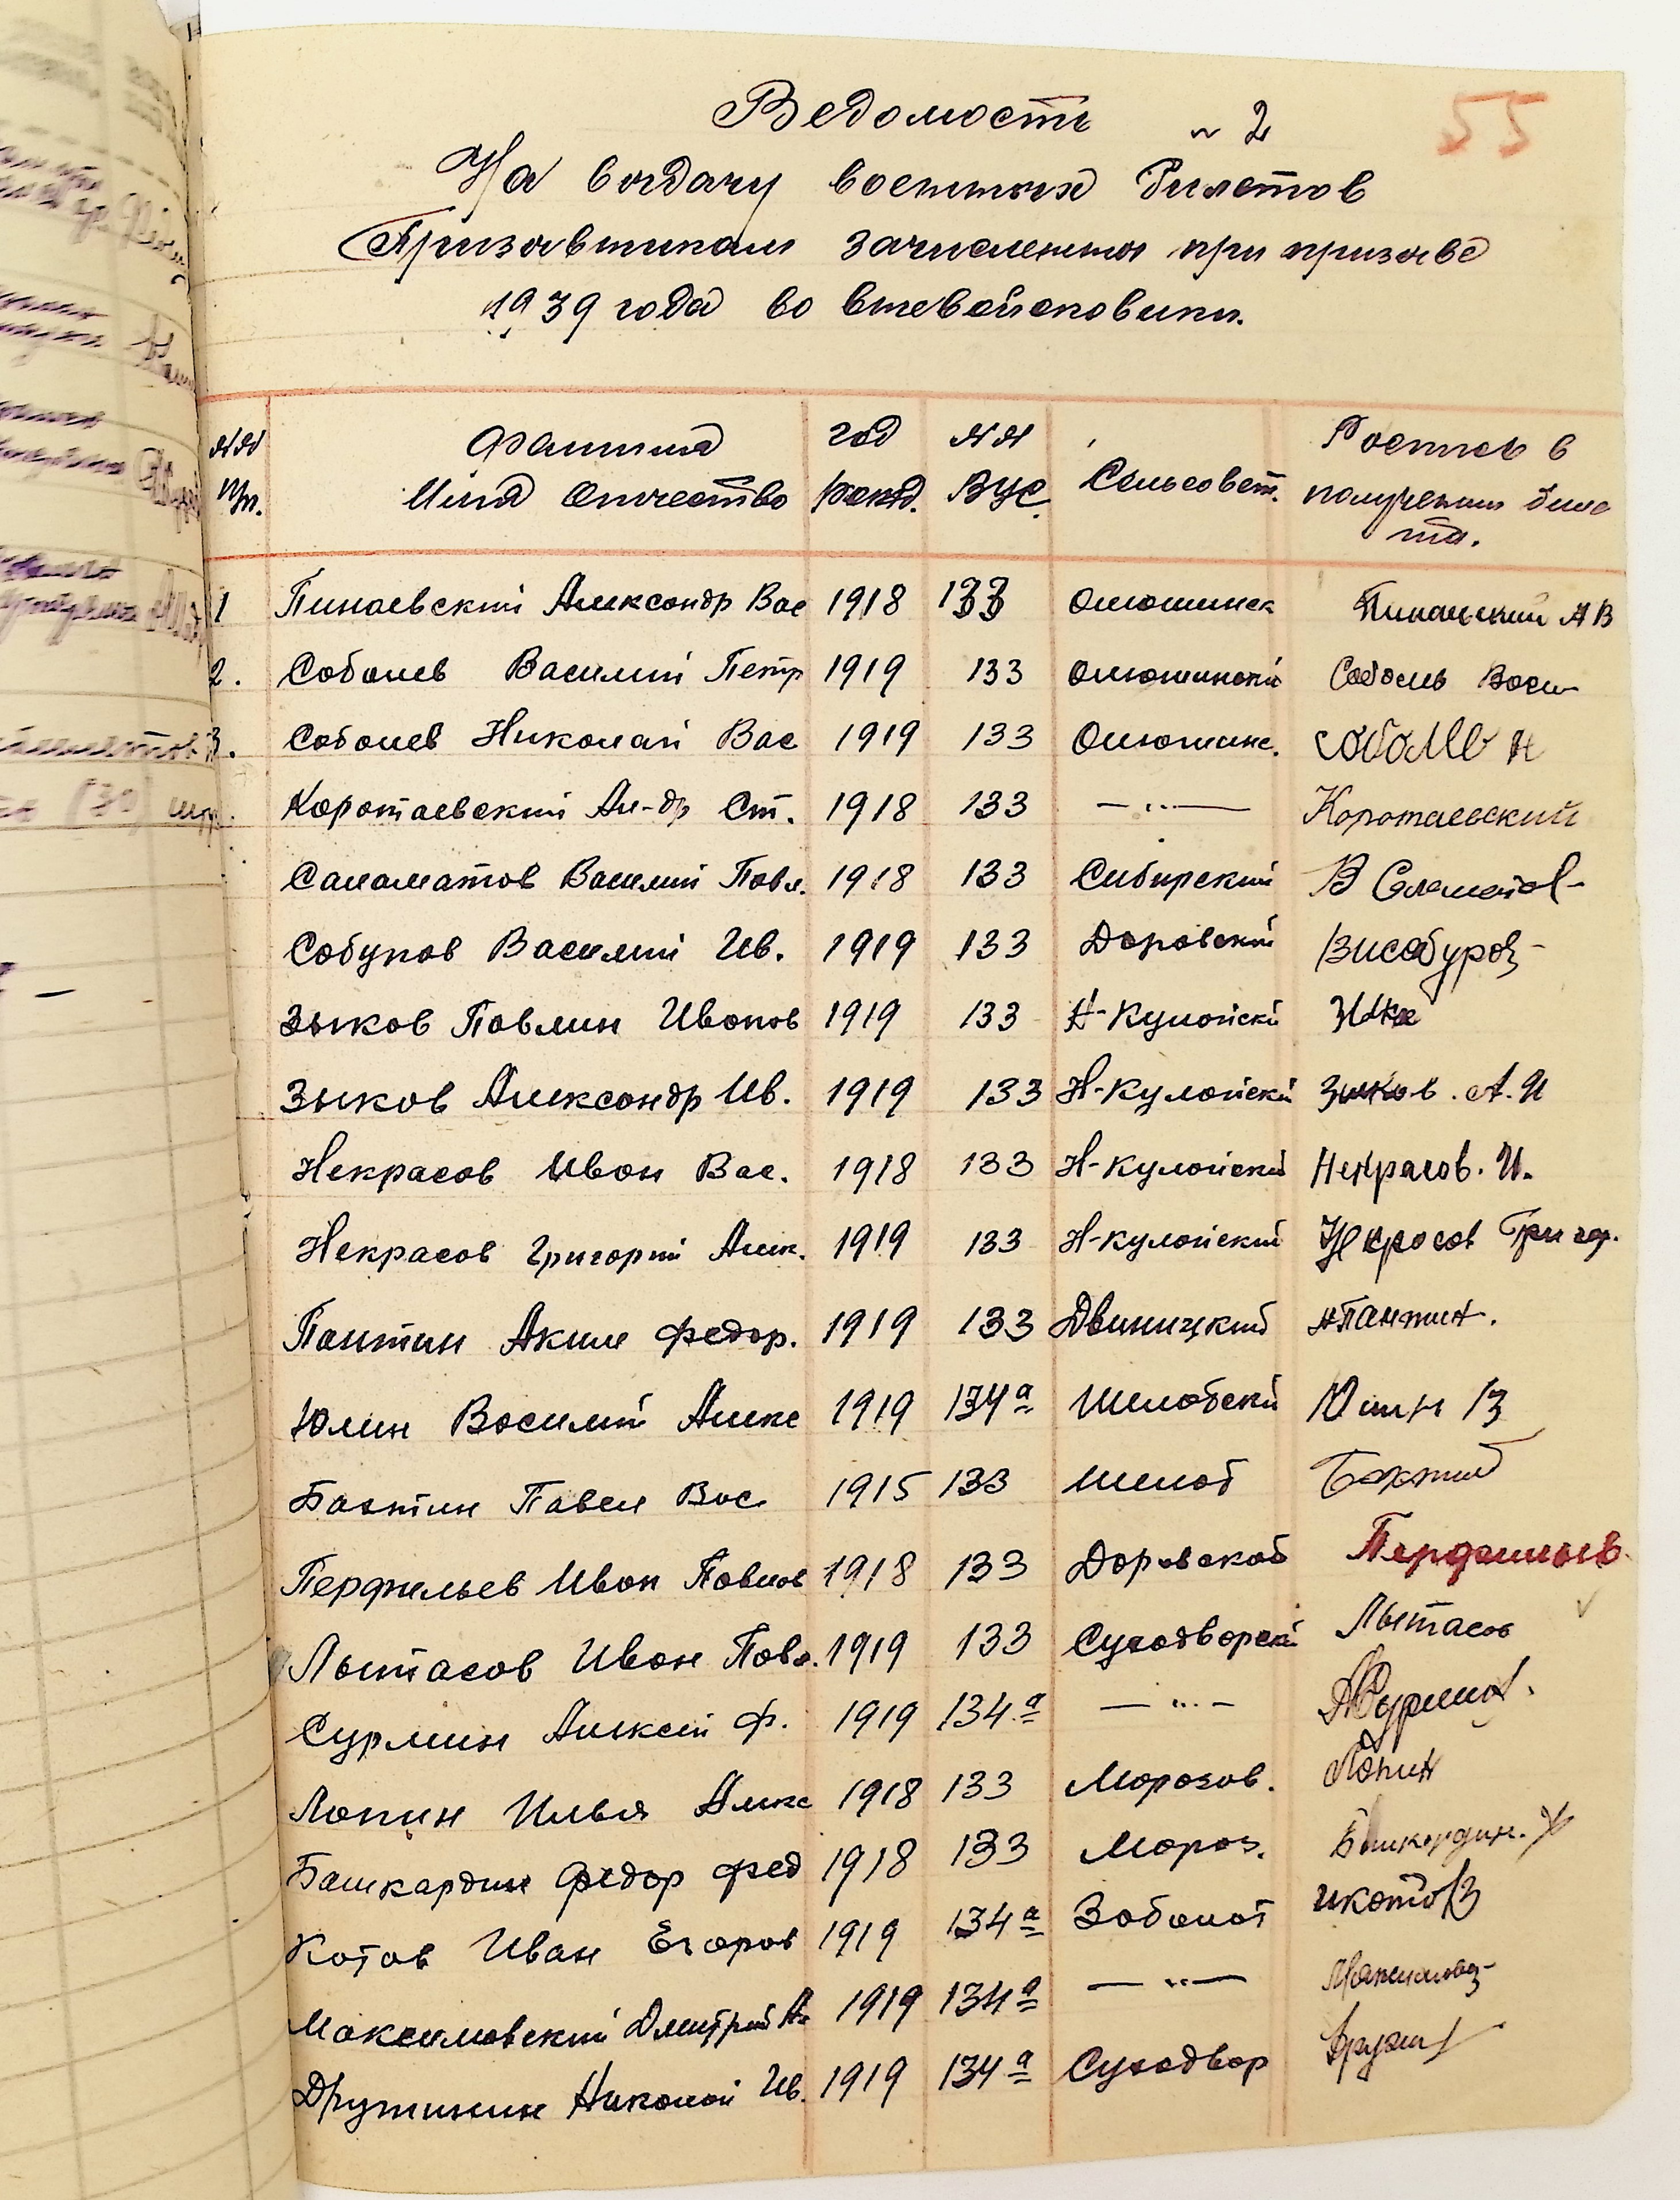 55
Ведомость № 2
На выдачу военных билетов
Призывникам зачисленных при призыве
1939 года во вневойсковики.
№№ п/п. Фамилия Имя Отчество год рожд. №№ ВУС. Сельсовет. Роспись в получении билета.
1 Пинаевский Александр Вас 1918 133 Олюшинск Пинаевский АВ
2. Соболев Василий Петр 1919 133 Олюшински Соболев Васи
3. Соболев Николай Вас 1919 133 Олюшинс. Соболев Н
Коротаевский Ал-др Ст. 1918 133 — „ — Коротаевский
Саламатов Василий Павл. 1918 133 Сибирский В Саламатов
Собуров Василий Ив. 1919 133 Доровский ВИСобуров
Зыков Павлин Иванов 1919 133 Н-Кулойски Зыков
Зыков Александр Ив. 1919 133 Н-Кулойски Зыков. А.И
Некрасов Иван Вас. 1918 133 Н-Кулойски Некрасов. И.
Некрасов Григорий Алек. 1919 133 Н-Кулойский Некрасов Григор.
Пантин Аким Федор. 1919 133 Двиницкий АПантин.
Юлин Василий Алекс 1919 134а Шелотски Юлин В
Бахтин Павел Вас 1915 133 Шелот Бахтин
Перфильев Иван Павлов 1918 133 Доровской Перфильев.
Лытасов Иван Павл. 1919 133 Суходворски Лытасов
Сурмин Алексей Ф. 1919 134а — „ — АСурмин.
Лопин Илья Алекс 1918 133 Морозов. Лопин
Башкардин Федор Фед 1918 133 Мороз. Башкардин.
Котов Иван Егоров 1919 134а Заболот ИКотов
Максимовский Дмитрий Ал 1919 134а — „ —
Дружинин Николай Ив. 1919 134а Суходвор Дружин